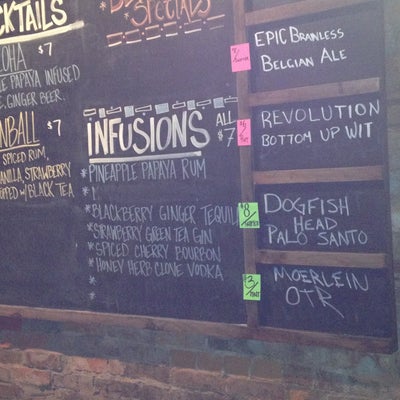 CKTAILS
OHA $7
PAPAYA INFUSED
GINGER BEER.
NBALL $7
SPICED RUM,
VANILLA, STRAWBERRY
OPPED W/ BLACK TEA
SPECIALS
INFUSIONS ALL $7
*PINEAPPLE PAPAYA RUM
*BLACKBERRY GINGER TEQUIL
*STRAWBERRY GREEN TEA GIN
*SPICED CHERRY BOURBON
*HONEY HERB CLOVE VODKA
*
*
EPIC BRAINLESS
BELGIAN ALE
REVOLUTION
BOTTOM UP WIT
$8/
DOGFISH
HEAD
PALO SANTO
$3/
MOERLEIN
OTR